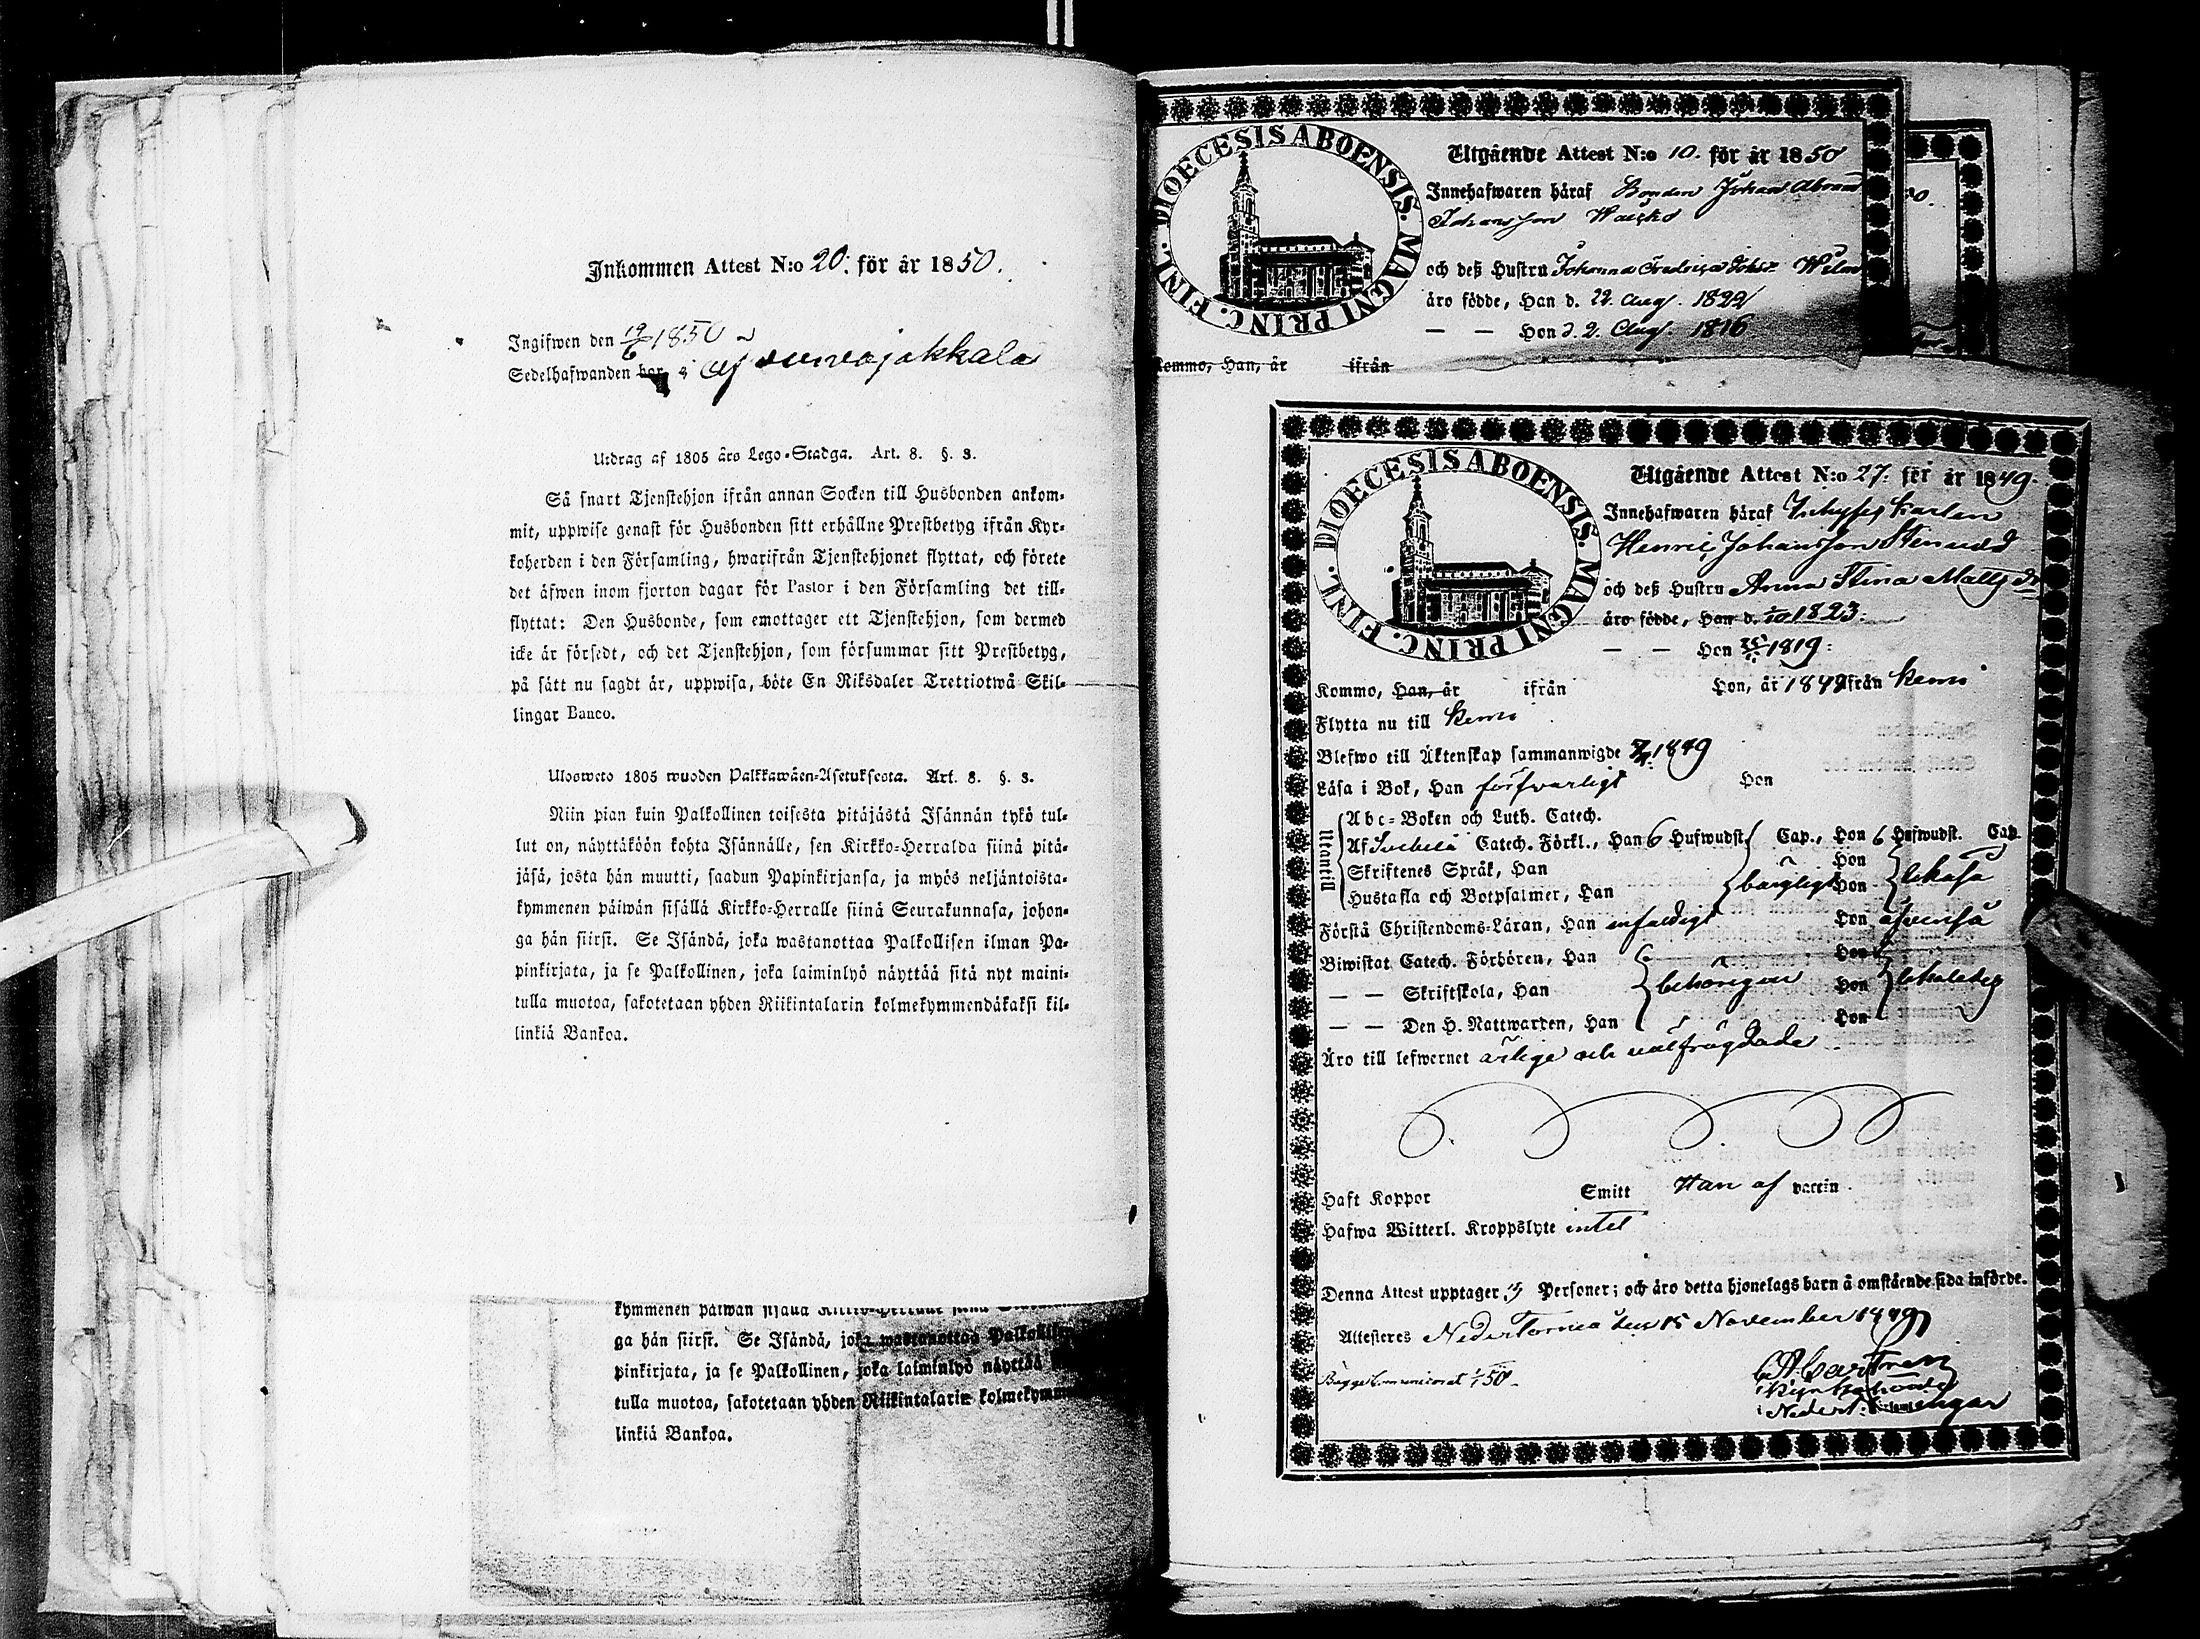 Inkommen Attest N:o 20. för år 1850.
Ingifwen den 19/6 1850
Sedelhafwanden bor i
Utdrag af 1805 års Lego-Stadga. Art. 8. §. 3.
Så snart Tjenstehjon ifrån annan Socken till Husbonden ankom-
mit, uppwise genast för Husbonden sitt erhållne Prestbetyg ifrån Kyr-
koherden i den Församling, hwarifrån Tjenstehjonet flyttat, och förete
det äfwen inom fjorton dagar för Pastor i den Församling det till-
flyttat: Den Husbonde, som emottager ett Tjenstehjon, som dermed
icke är försedt, och det Tjenstehjon, som försummar sitt Prestbetyg,
på sätt nu sagdt är, uppwisa, böte En Riksdaler Trettiotwå Skil-
lingar Banco.
Ulosweto 1805 wuoden Palkkawäen-Asetuksesta. Art. 8. §. 3.
Niin pian kuin Palkollinen toisesta pitäjästä Isännän tykö tul-
lut on, näyttäköön kohta Isännälle, sen Kirkko-Herralda siinä pitä-
jäsä, josta hän muutti, saadun Papinkirjansa, ja myös neljäntoista-
kymmenen päiwän sisällä Kirkko-Herralle siinä Seurakunnasa, johon-
ga hän siirst. Se Isändä, joka wastanottaa Palkollisen ilman Pa-
pinkirjata, ja se Palkollinen, joka laiminlyö näyttää sitä nyt maini-
tulla muotoa, sakotetaan yhden Riikintalarin kolmekymmendäkaksi kil-
linkiä Bankoa.
kymmenen päiwän sisällä Kirkko-Herralle siinä
ga hän siirst. Se Isändä, joka wastanottaa
pinkirjata, ja se Palkollinen, joka laiminlyö näyttää
tulla muotoa, sakotetaan yhden Riikintalarin kolmekymm
linkiä Bankoa.
DIOECESIS ABOENSIS. MAGNI PRINC. FINL.
Utgående Attest N:o 10. för år 1850
Innehafwaren häraf Bonden Johan Abram
Johansson
och deß Hustru Johanna Fredrica
äro födde, Han d. 22. Aug. 1822
— — Hon d. 2. Aug. 1816
Kommo, Han, år ifrån
DIOECESIS ABOENSIS. MAGNI PRINC. FINL.
Utgående Attest N:o 27. för år 1849.
Innehafwaren häraf Inhyses karlen
Henric Johansson Stenudd
och deß Hustru Anna Stina Matts dr
äro födde, Han d. 1823.
— — Hon 1819.
Kommo, Han, år ifrån Hon, år 1849 ifrån Kemi
Flytta nu till Kemi
Blefwo till Äktenskap sammanwigde 1849
Läsa i Bok, Han försvarligt Hon
Utantill
Abc-Boken och Luth. Catech.
Af Svebelii Catech. Förkl., Han 6 Hufwudst. Cap., Hon 6 Hufwudst. Cap.
Skriftenes Språk, Han Hon
Hustafla och Botpsalmer, Han Hon likaså
Förstå Christendoms-Läran, Han enfaldigt Hon äfvenså
Biwistat Catech. Förhören, Han Hon
— — Skriftskola, Han behörigen Hon likaledes
— — Den H. Nattwarden, Han Hon
Äro till lefwernet ärliga och välfrägdade
Haft Koppor Smitt Han af vaccin.
Hafwa Witterl. Kroppslyte intet
Denna Attest upptager 3 Personer; och äro detta hjonelags barn å omstående sida införde.
Attesteres NederTornea den 15 November 1849